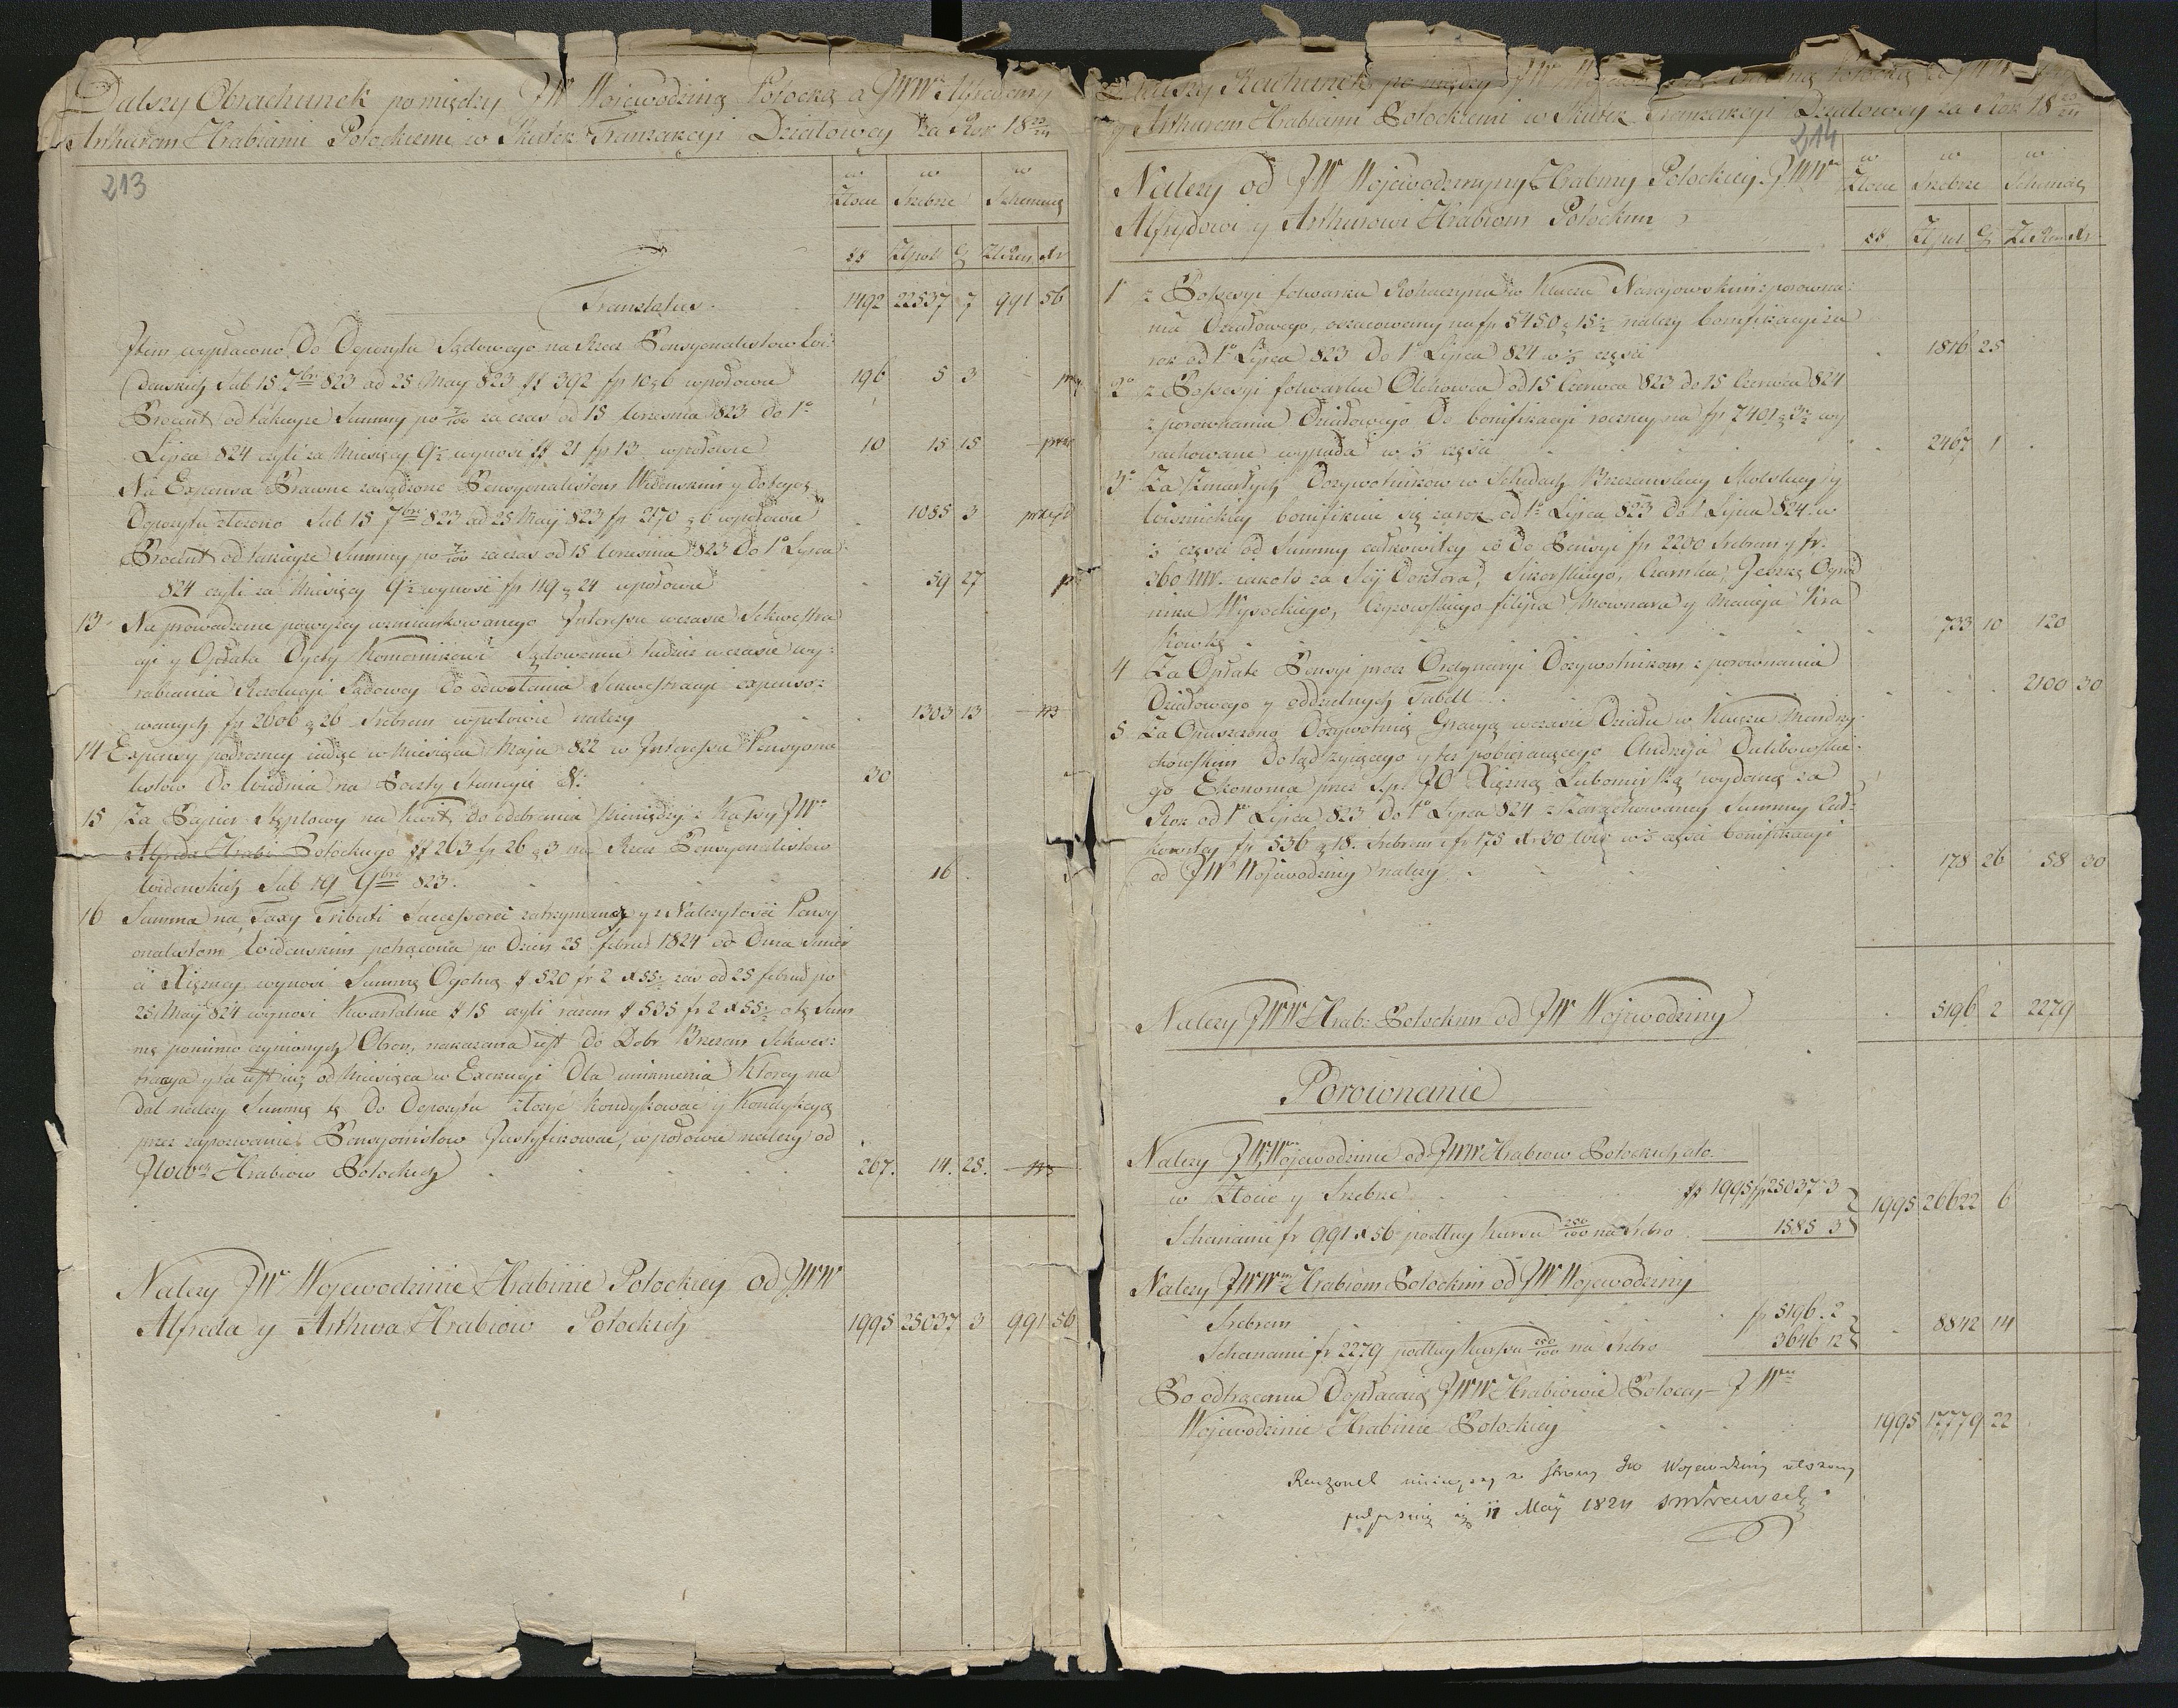 Dalszy Obrachunek pomiędzy JW Wojewodziną Potocką a JWW Alfredem y
Arthurem Hrabiami Potockiemi w Skutek Tranzakcyi Działowey za Rok 18 23/24
213
w Złocie w Srebrze w Szeinach
## Złpol g ZłRen Xr
Translatus 1492 22537 7 991 56
Item wypłacono Do Depozytu Sądowego na Rzecz Pensyonalistow Wi-
denskich Sub 15 7bri 823 ad 25 May 823 ## 392 fp 10 g 6 wpołowie 196 5 3
Procent od takieyże Summy po 7/100 za czas od 15 Wrzesnia 823 do 1o
Lipca 824 czyli za Miesięcy 9½ wynosi ## 21 fp 13 wpołowie 10 15 15
Na Expensa Prawne zasądzone Pensyonalistom Widenskim y do tegoż
Depozytu złożono Sub 15 7bri 823 ad 25 Maij 823 fp 2170 g 6 wpołowie 1085 3
Procent od takieyże Summy po 7/100 za czas od 15 Wrzesnia 823 Do 1o Lipca
824 czyli za Miesięcy 9½ wynosi fp 119 g 24 wpołowie 59 27
13 Na prowadzenie powyżey wzmiankowanego Interessu wczasie Sekwestra
cyi y Opłata Dyety Komornikowi Sądowemu tudzież wczasie wy-
rabiania Rezolucyi Sądowey do odwołania Sekwestracyi expenso-
wanych fp 2606 g 26 Srebrem wpołowie należy 1303 13
14 Expensy podrożney iadąc w Miesiącu Maju 822 w Interessie Pensyona
listow Do Widnia na Poczty Stancyie & 30
15 Za Papier Stęplowy na Kwit do odebrania Pieniędzy z Kassy JW
Alfreda Hrabi Potockiego ## 263 fp 26 g 3 na Rzecz Pensyonalistow
Widenskich Sub 19 9bris 823 16
16 Summa na Taxy Tributi Successorei zatrzymana y z Należytości Pensy
onalistom Widenskim potrącona po Dzień 25 febru 1824 od Dnia Smier
ci Xiężney wynosi Summę Ogolną # 520 fr 2 x 55½ zaś od 25 februar po
25 May 824 wynosi Kwartalnie # 15 czyli razem # 535 fr 2 x 55½ o tę Sum
mę pomimo czynionych Obron, nakazana iest do Dobr Brzezan Sekwes-
tracya y ta iest iuż od Miesiąca w Exekucyi Dla uniknienia Ktorey na
dal należy Summę tę Do Depozytu złożyć kondyktować y Kondykcyą
przez zapozwanie Pensyonistow Justyfikować, wpołowie należy od
JWWch Hrabiow Potockich 267. 14. 28.
Należy JW Wojewodzinie Hrabinie Potockiey od JWW
Alfreda y Arthura Hrabiow Potockich 1995 25037 3 991 56
Dalszy Rachunek pomiędzy JW Potocką
y Arthurem Hrabiami Potockiemi w Skutek Tranzakcyi Działowey za Rok 18 23/24
214
Należy od JW Wojewodzinyny Hrabiny Potockiey JWW
Alfredowi y Arthurowi Hrabiom Potockim
w Złocie w Srebrze w Szeinach
## Złpol g ZłRen Xr
1o z Possesyi folwarku Rohaczyna w Kluczu Narajowskim z porowna-
nia Działowego, oszacowany na fp 5450 g 15½ należy bonifikacyi za
rok od 1o Lipca 823 Do 1o Lipca 824 w ⅓ części 1816 25
2o z Possesyi folwarku Olchowca od 15 Czerwca 823 do 15 Czerwca 824
z porownania Działowego do bonifikacyi roczney na fp 7401 g 3½ wy
rachowane wypada w ⅓ części 2467 1
3o Za Zmarłych Dożywotnikow w Schedach Brzezanskiey Skolskiey y
Wisnickiey bonifikuie się za rok od 1o Lipca 823 Do 1 Lipca 824 w
⅓ części od Summy całkowitey co do Pensyi fp 2200 Srebrem y fr
360 WW. iakoto za Doktora, Sikorskiego, Czarnka, Ogrod
nika Wysockiego, Czyzowskiego filipa y Macieja Kra
kowkę 733 10 120
4 Za Opłate Pensyi przez Ordynaryi Dożywotnikom z porownania
Działowego y oddzielnych Tabell 2100 30
5 Za Opuszczoną Dożywotnią Gracyą wczasie Działu w Kluczu Mendry-
chowskim Dotąd żyiącego y też pobieraiącego Andrzeja Dulibowskie-
go Ekonoma przez s.p. JO Xiężnę Lubomirską wydaną za
Rok od 1o Lipca 823 Do 1o Lipca 824 z Porachowaney Summy Cał-
kowitey fp 536 g 18. Srebrem i fr 175 Xr 30 WW w ⅓ części bonifikacyi
od JW Wojewodziny należy 178 26 58 30
Należy JWW Hrab: Potockim od JW Wojewodziny 5196 2 2279
Porównanie
Należy JW Wojewodzinie od JWW Hrabiow Potockich, ato.
w Złocie y Srebrze ## 1995 fp 25037 3
1995 26622 6
Scheinami fr 991 x 56 podług kursu 250/100 na Srebro 1585 3
Należy JWWm Hrabiom Potockim od JW Wojewodziny
Srebrem fp 5196. 2
8842 14
Scheinami fr 2279 podług Kursu 250/100 na Srebro 3646 12
Po odtrąceniu Dopłacaią JWW Hrabiowie Potoccy JW
Wojewodzinie Hrabinie Potockiey 1995 17779 22
ninieyszy ze strony JW Wojewodziny złożony
11 Maÿ 1824